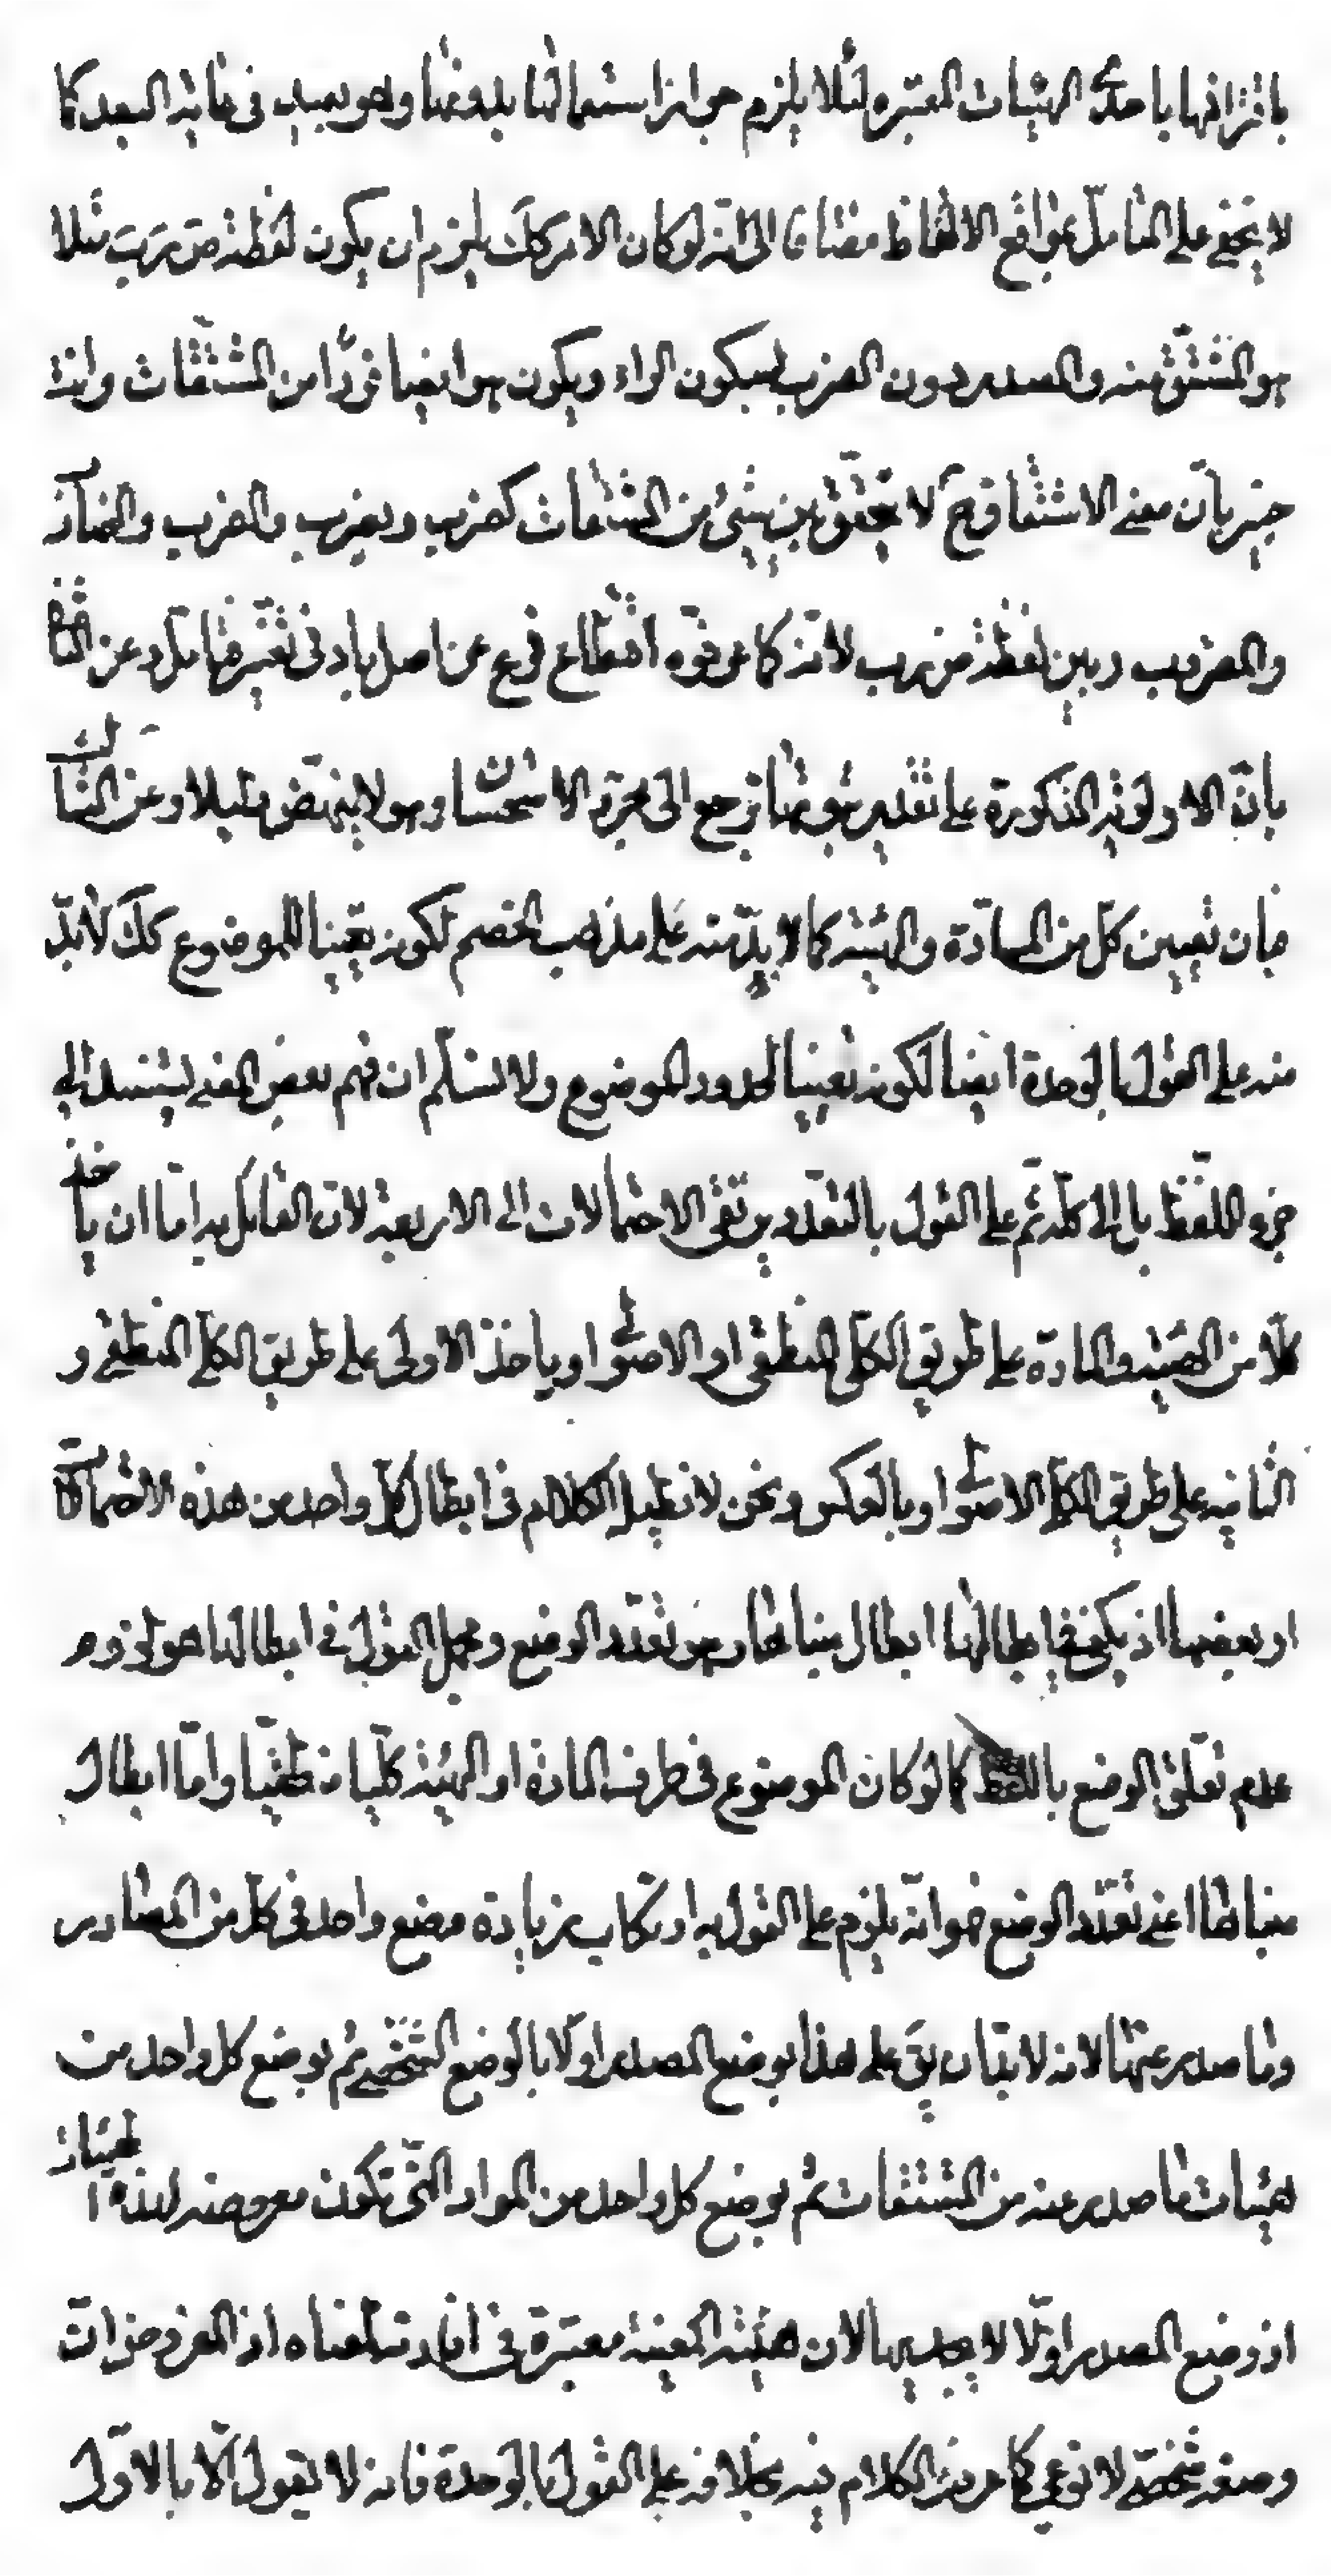 باقترانها باحدى الهيئات المعتبره لئلا يلزم جواز استعمالها بدونها وهو بعيد فى غاية البعد كما
لا يخفى على المتأمل بمواقع الالفاظ مضافا الى انّه لو كان الامر كك يلزم ان يكون لفظة ضَ رَ بَ مثلا
هو المشتقّ منه والمصدر دون الضرب بسكون الراء ويكون هو ايضا فردًا من المشتقّات وانت
خبير بانّ معنى الاشتقاق ح لا يتحقّق بين شىء من المشتقات كضرب ويضرب والضرب والضارب
والمضروب وبين لفظة ض رب لانّه كما عرفوه اقتطاع فرع عن اصل بادنى تغيّر فتامل وعن الثانى
بانّ الاولويّة المذكورة على تقدير ثبوتها ترجع الى مجرّد الاستحسان وهو لا ينهض دليلا وعن الثالث
فبان تعيين كل من المادّة والهيئة كما لا بدّ منه على مذهب الخصم لكونه تعيينا للموضوع كك لا بدّ
منه على القول بالوحدة ايضا لكونه تعيينا لحدود الموضوع ولا نسلّم ان فهم بعض المعنى يستند الى
جزء اللفظ بل الى كلّه ثم على القول بالتعدّد يرتقى الاحتمالات الى الاربعة لانّ القائل به امّا ان ياخذ
كلّا من الهيئة والمادّة على طريق الكلّى المنطقى او الاصولى او ياخذ الاولى على طريق الكلّى المنطقى و
الثانيه على طريق الكلّى الاصولى او بالعكس ونحن لا نطيل الكلام فى ابطال كلّ واحد من هذه الاحتمالات
او بعضها اذ يكفى فى ابطالها ابطال مبناها وهو تعدّد الوضع ومجمل القول فى ابطالها هو لزوم
عدم تعلّق الوضع باللفظ كما لو كان الموضوع فى طرف المادة او الهيئة كلّيا منطقيّا وامّا ابطال
مبناها اعنى تعدّد الوضع فهو انّه يلزم على القول به ارتكاب زيادة وضع واحد فى كلّ من المصادر
وما صدر عنها لانه لا بدّ ان يق على هذا بوضع المصدر اولا بالوضع الشخصى ثم بوضع كل واحد من
هيئات ما صدر عنه من المشتقات ثم بوضع كل واحد من المواد الّتى تكون معروضه لهذه الهيئات
اذ وضع المصدر اوّلا لا يجديها لان هيئته المعينة معتبرة فى افادته لمعناه اذ المفروض انّ
وضعه شخصى لا نوعى كما مرّ من الكلام فيه بخلافه على القول بالوحدة فانه لا يقول الّا بالاوّل